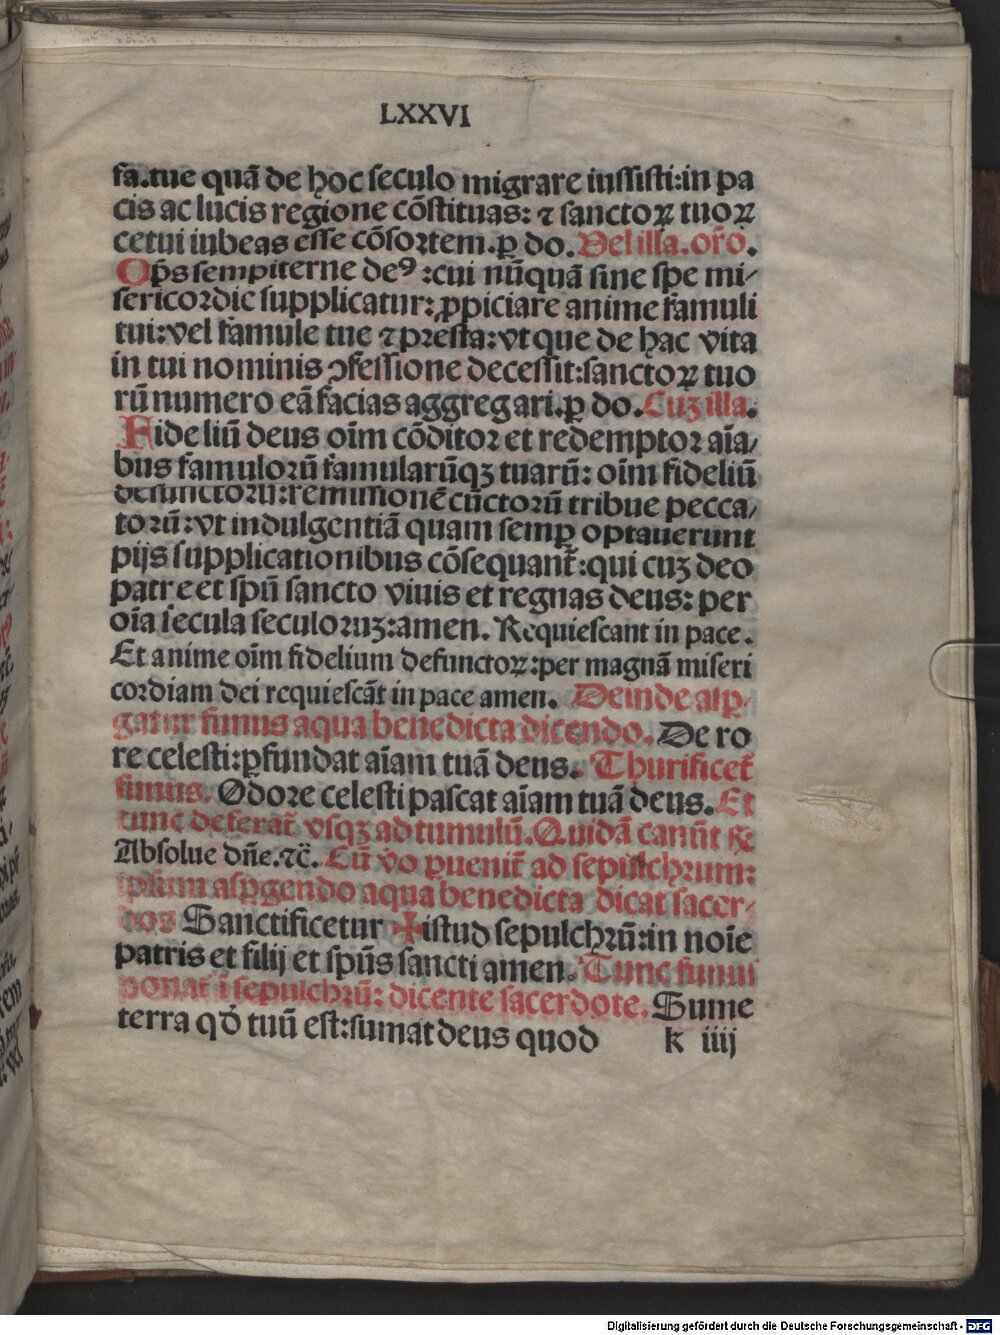 LXXVI
fa.tue quã de hoc seculo migrare iussisti:in pa
cis ac lucis regione cõstituas: ⁊ sanctoꝝ tuoꝝ
cetui iubeas esse cõsortem.ꝑ do. Vel illa.oro̅.
Op̅s sempiterne deꝰ :cui nũquã sine spe mi/
sericordie supplicatur: ꝓpiciare anime famuli
tui:vel famule tue ⁊ presta: vt que de hac vita
in tui nominis ꝯfessione decessit:sanctoꝝ tuo
rũ numero eã facias aggregari.ꝑ do. Cuꝫ illa.
Fideliũ deus oĩm cõditor et redemptor aĩa/
bus famulorũ famularũqꝫ tuarũ: oĩm fideliũ
defunctorũ:remissionẽ cũctorũ tribue pecca/
torũ: vt indulgentiã quam semꝑ optauerunt
pijs supplicationibus cõsequant̃:qui cuꝫ deo
patre et spũ sancto viuis et regnas deus: per
oĩa secula seculoruꝫ:amen. Requiescant in pace.
Et anime oĩm fidelium defunctoꝝ:per magnã miseri
cordiam dei requiescãt in pace amen. Deinde asꝑ/
gatur funus aqua benedicta dicendo. De ro
re celesti:ꝑfundat aĩam tuã deus. Thurificet̃
funus. Odore celesti pascat aĩam tuã deus. Et
tunc deferat̃ vsqꝫ ad tumulũ. Quidã canũt ℟
Absolue dñe.⁊c̃. Cũ vo ꝑuenit̃ ad sepulchrum:
ipsum asꝑgendo aqua benedicta dicat sacer/
dos Sanctificetur ✠ istud sepulchrũ:in noĩe
patris et filij et spũs sancti amen. Tunc funus
ponat̃ ĩ sepulchrũ: dicente sacerdote. Sume
terra qõ tuũ est:sumat deus quod k iiij
Digitalisierung gefördert durch die Deutsche Forschungsgemeinschaft - DFG